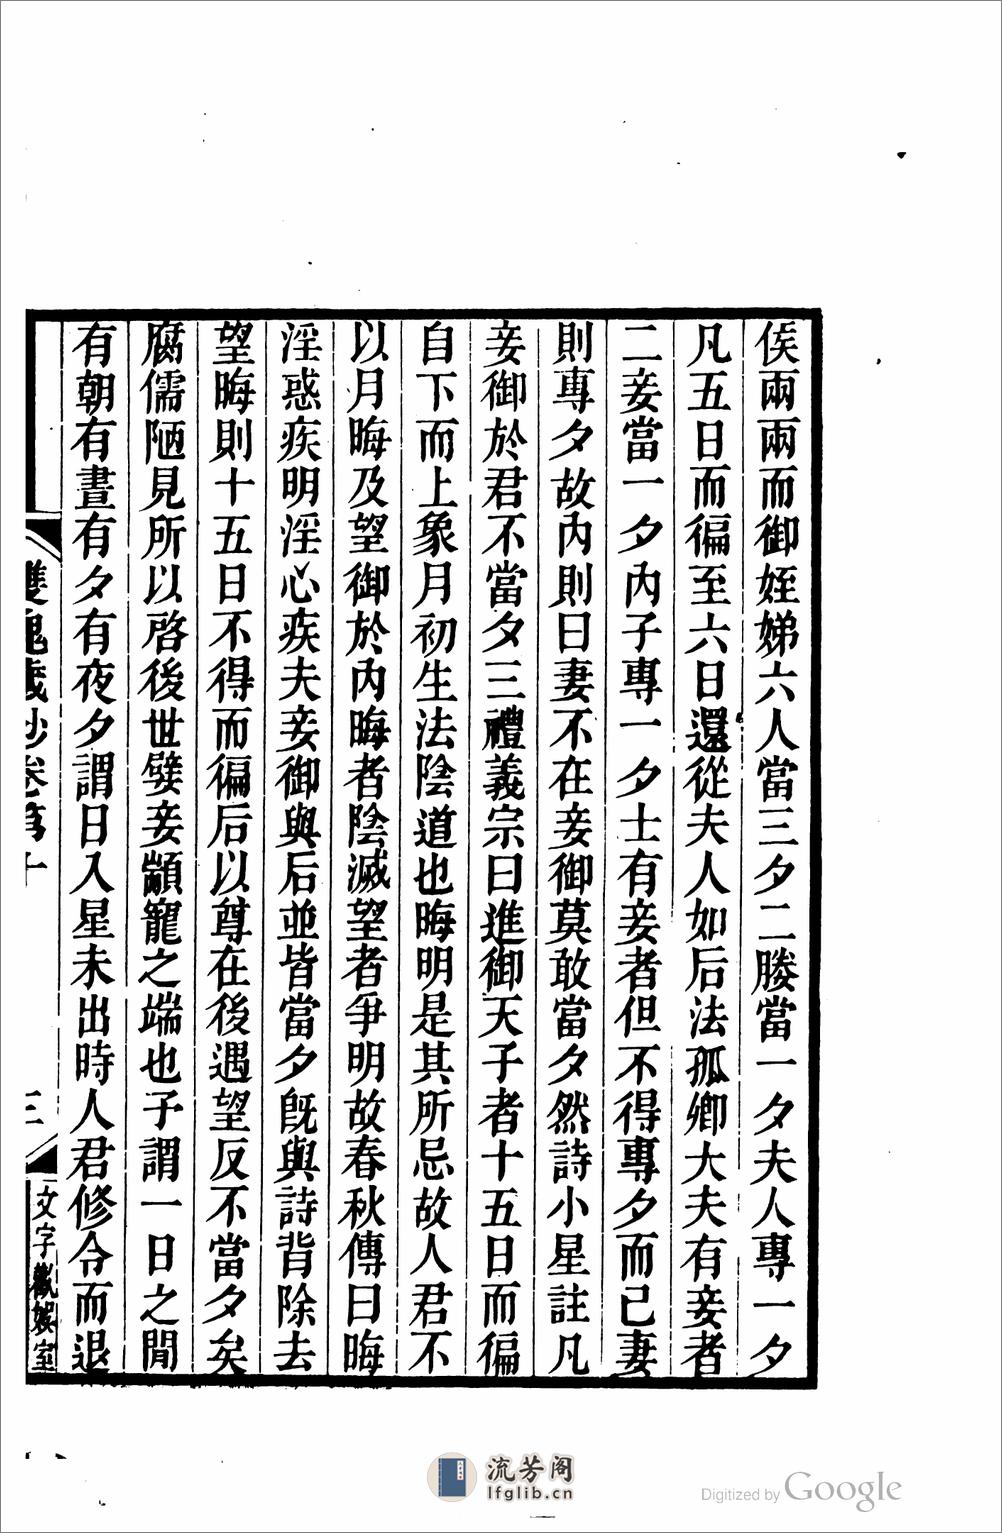 侯兩兩而御姪娣六人當三夕二媵當一夕夫人專一夕
凡五日而徧至六日還從夫人如后法孤卿大夫有妾者
二妾當一夕內子專一夕士有妾者但不得專夕而已妻
則專夕故內則曰妻不在妾御莫敢當夕然詩小星註凡
妾御於君不當夕三禮義宗曰進御天子者十五日而徧
自下而上象月初生法陰道也晦明是其所忌故人君不
以月晦及望御於內晦者陰滅望者爭明故春秋傳曰晦
淫惑疾明淫心疾夫妾御與后並皆當夕旣與詩背除去
望晦則十五日不得而徧后以尊在後遇望反不當夕矣
腐儒陋見所以啓後世嬖妾顓寵之端也予謂一日之閒
有朝有晝有夕有夜夕謂日入星未出時人君修令而退
雙槐歲抄卷第十
三
文字歡娛室
流芳阁
lfglib.cn
Digitized by Google